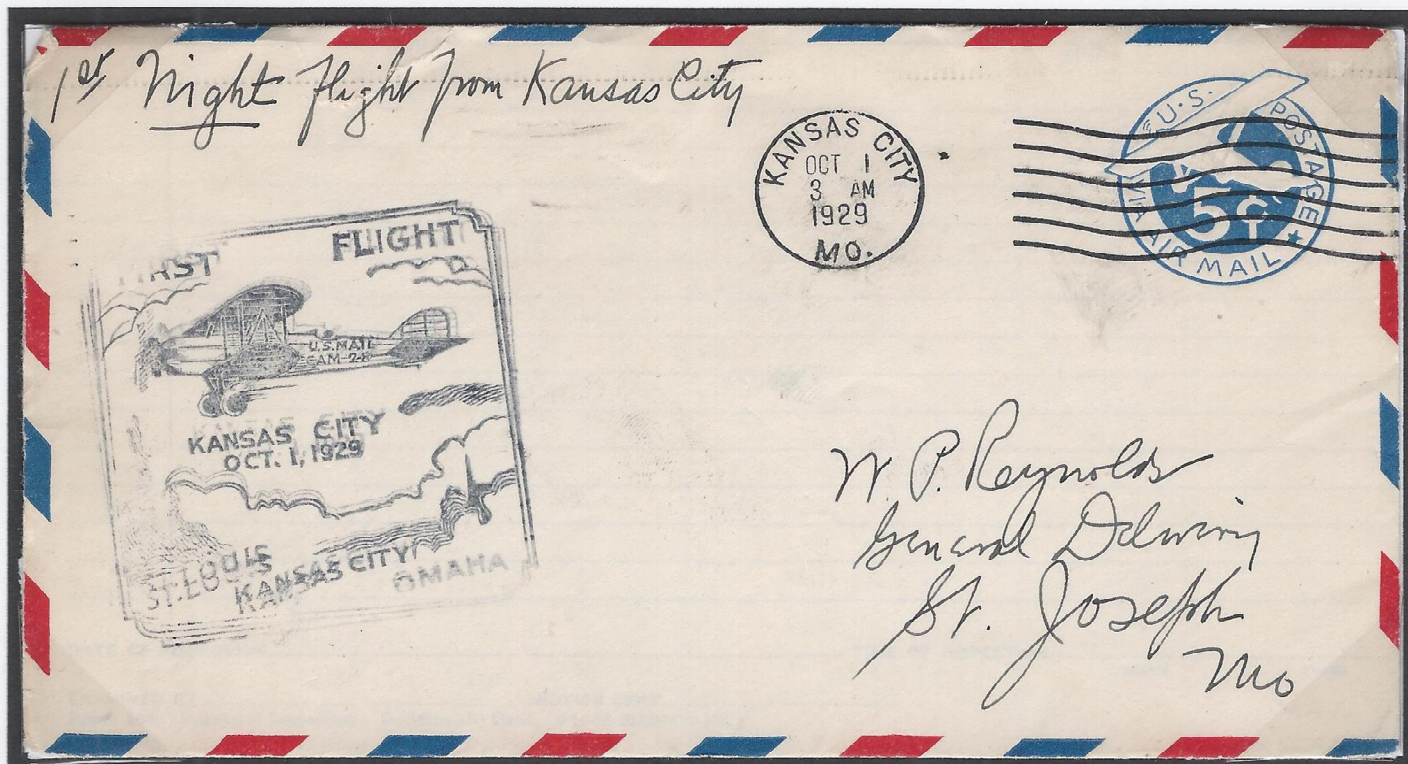 1st Night Flight from Kansas City
KANSAS CITY
OCT 1
3 AM
1929
MO.
U.S. POSTAGE
5¢
VIA AIR MAIL
FIRST FLIGHT
U.S. MAIL
CAM-28
KANSAS CITY
OCT. 1, 1929
ST. LOUIS
KANSAS CITY
OMAHA
W. P. Reynolds
General Delivery
St. Joseph
Mo